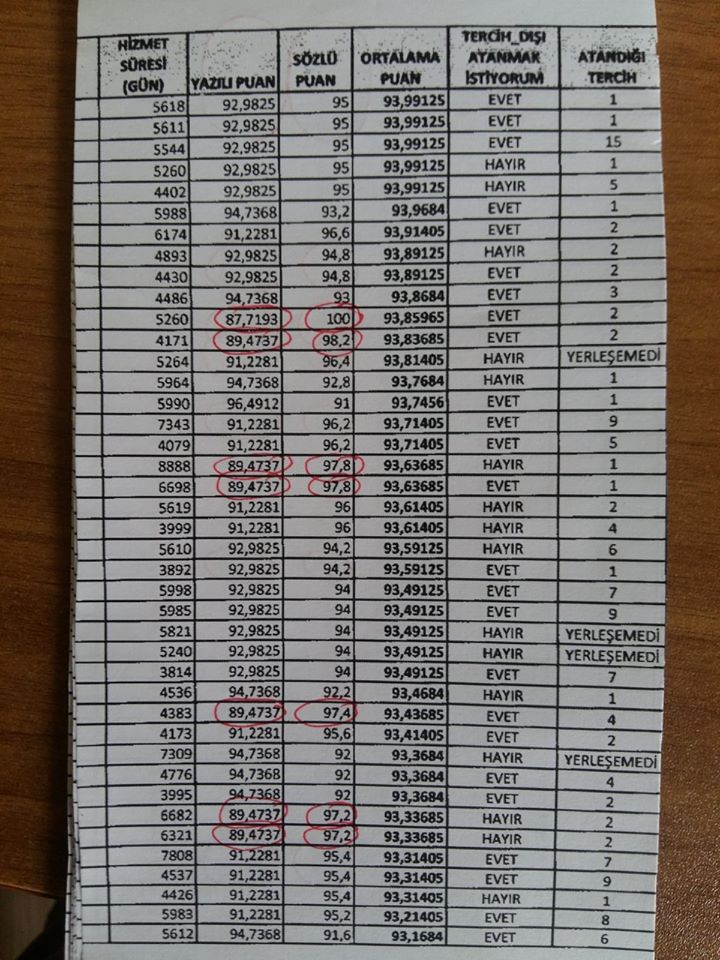 HİZMET SÜRESİ (GÜN) YAZILI PUAN SÖZLÜ PUAN ORTALAMA PUAN TERCİH_DIŞI ATANMAK İSTİYORUM ATANDIĞI TERCİH
5618 92,9825 95 93,99125 EVET 1
5611 92,9825 95 93,99125 EVET 1
5544 92,9825 95 93,99125 EVET 15
5260 92,9825 95 93,99125 HAYIR 1
4402 92,9825 95 93,99125 HAYIR 5
5988 94,7368 93,2 93,9684 EVET 1
6174 91,2281 96,6 93,91405 EVET 2
4893 92,9825 94,8 93,89125 HAYIR 2
4430 92,9825 94,8 93,89125 EVET 2
4486 94,7368 93 93,8684 EVET 3
5260 87,7193 100 93,85965 EVET 2
4171 89,4737 98,2 93,83685 EVET 2
5264 91,2281 96,4 93,81405 HAYIR YERLEŞEMEDİ
5964 94,7368 92,8 93,7684 HAYIR 1
5990 96,4912 91 93,7456 EVET 1
7343 91,2281 96,2 93,71405 EVET 9
4079 91,2281 96,2 93,71405 EVET 5
8888 89,4737 97,8 93,63685 HAYIR 1
6698 89,4737 97,8 93,63685 EVET 1
5619 91,2281 96 93,61405 HAYIR 2
3999 91,2281 96 93,61405 HAYIR 4
5610 92,9825 94,2 93,59125 HAYIR 6
3892 92,9825 94,2 93,59125 EVET 1
5998 92,9825 94 93,49125 EVET 7
5985 92,9825 94 93,49125 EVET 9
5821 92,9825 94 93,49125 HAYIR YERLEŞEMEDİ
5240 92,9825 94 93,49125 HAYIR YERLEŞEMEDİ
3814 92,9825 94 93,49125 EVET 7
4536 94,7368 92,2 93,4684 HAYIR 1
4383 89,4737 97,4 93,43685 EVET 4
4173 91,2281 95,6 93,41405 EVET 2
7309 94,7368 92 93,3684 HAYIR YERLEŞEMEDİ
4776 94,7368 92 93,3684 EVET 4
3995 94,7368 92 93,3684 EVET 2
6682 89,4737 97,2 93,33685 HAYIR 2
6321 89,4737 97,2 93,33685 HAYIR 2
7808 91,2281 95,4 93,31405 EVET 7
4537 91,2281 95,4 93,31405 EVET 9
4426 91,2281 95,4 93,31405 HAYIR 1
5983 91,2281 95,2 93,21405 EVET 8
5612 94,7368 91,6 93,1684 EVET 6